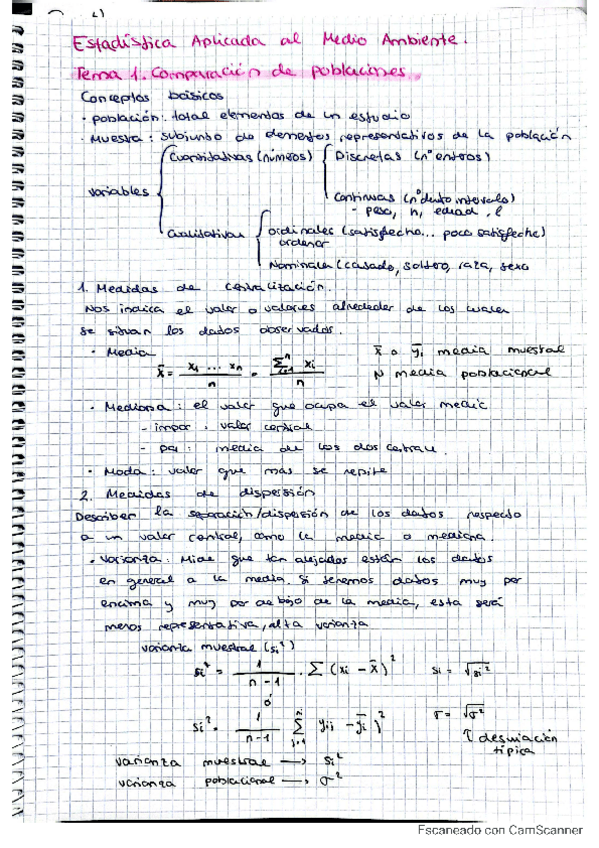 Estadística Aplicada al Medio Ambiente.
Tema 1. Comparación de poblaciones.
Conceptos básicos
· población: total elementos de un estudio
· Muestra: subjunto de elementos representativos de la población
variables
Cuantitativas (números)
Discretas (nº enteros)
Continuas (nº dento intervalo)
- peso, n, edad, l
Cualitativas
ordinales (satisfecho... poco satisfeche)
ordenar
Nominales (casado, soltero, raza, sexo
1. Medidas de centralización.
Nos indica el valor o valores alrededor de los cuales
se situan los datos observados.
· Media
x̄ = x₁ ... xₙ / n = Σⁿᵢ₌₁ xi / n
x̄ o ȳi media muestral
N media poblacional
· Mediana: el valor que ocupa el valor medic
- impar: valor central
- par: media de los dos central.
· Moda: valor que mas se repite
2. Medidas de dispersión
Describen la separación/dispersión de los datos respecto
a un valor central, como la media o mediana.
· Varianza: Mide que tan alejados están los datos
en general a la media. Si tenemos datos muy por
encima y muy por debajo de la media, esta será
menos representativa, alta varianza
varianta muestral (si²)
si² = 1 / n-1 . Σ (xi - x̄)²
si = √si²
ó
si² = 1 / n-1 Σⁿⱼ₌₁ yij - ȳi)²
σ = √σ²
desviación
típica
varianza muestral → si²
varianza poblacional → σ²
Escaneado con CamScanner